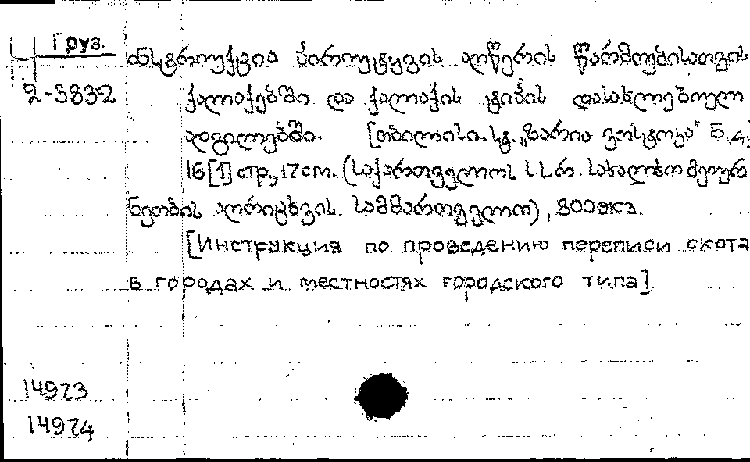 Груз.
2-5832
ინსტრუქცია პირუტყვის აღწერის წარმოებისათვის
ქალაქებში და ქალაქის ტიპის დასახლებულ
ადგილებში. [თბილისი. სტ. „ზარია ვოსტოკა"
16[1] стр., 17 cm. (საქართველოს ს.ს.რ. სახალხო მეურ
ნეობის აღრიცხვის სამმართველო), 800 экз.
[Инструкция по проведению переписи скота
в городах и местностях городского типа]
14973
14974